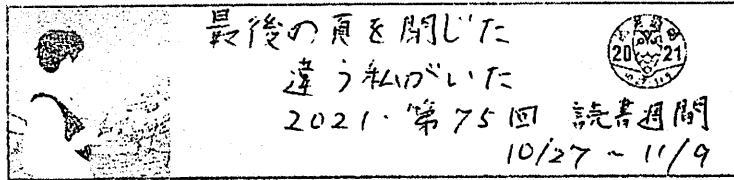 最後の頁を閉じた
違う私がいた
2021・第75回 読書週間
10/27～11/9
20 21